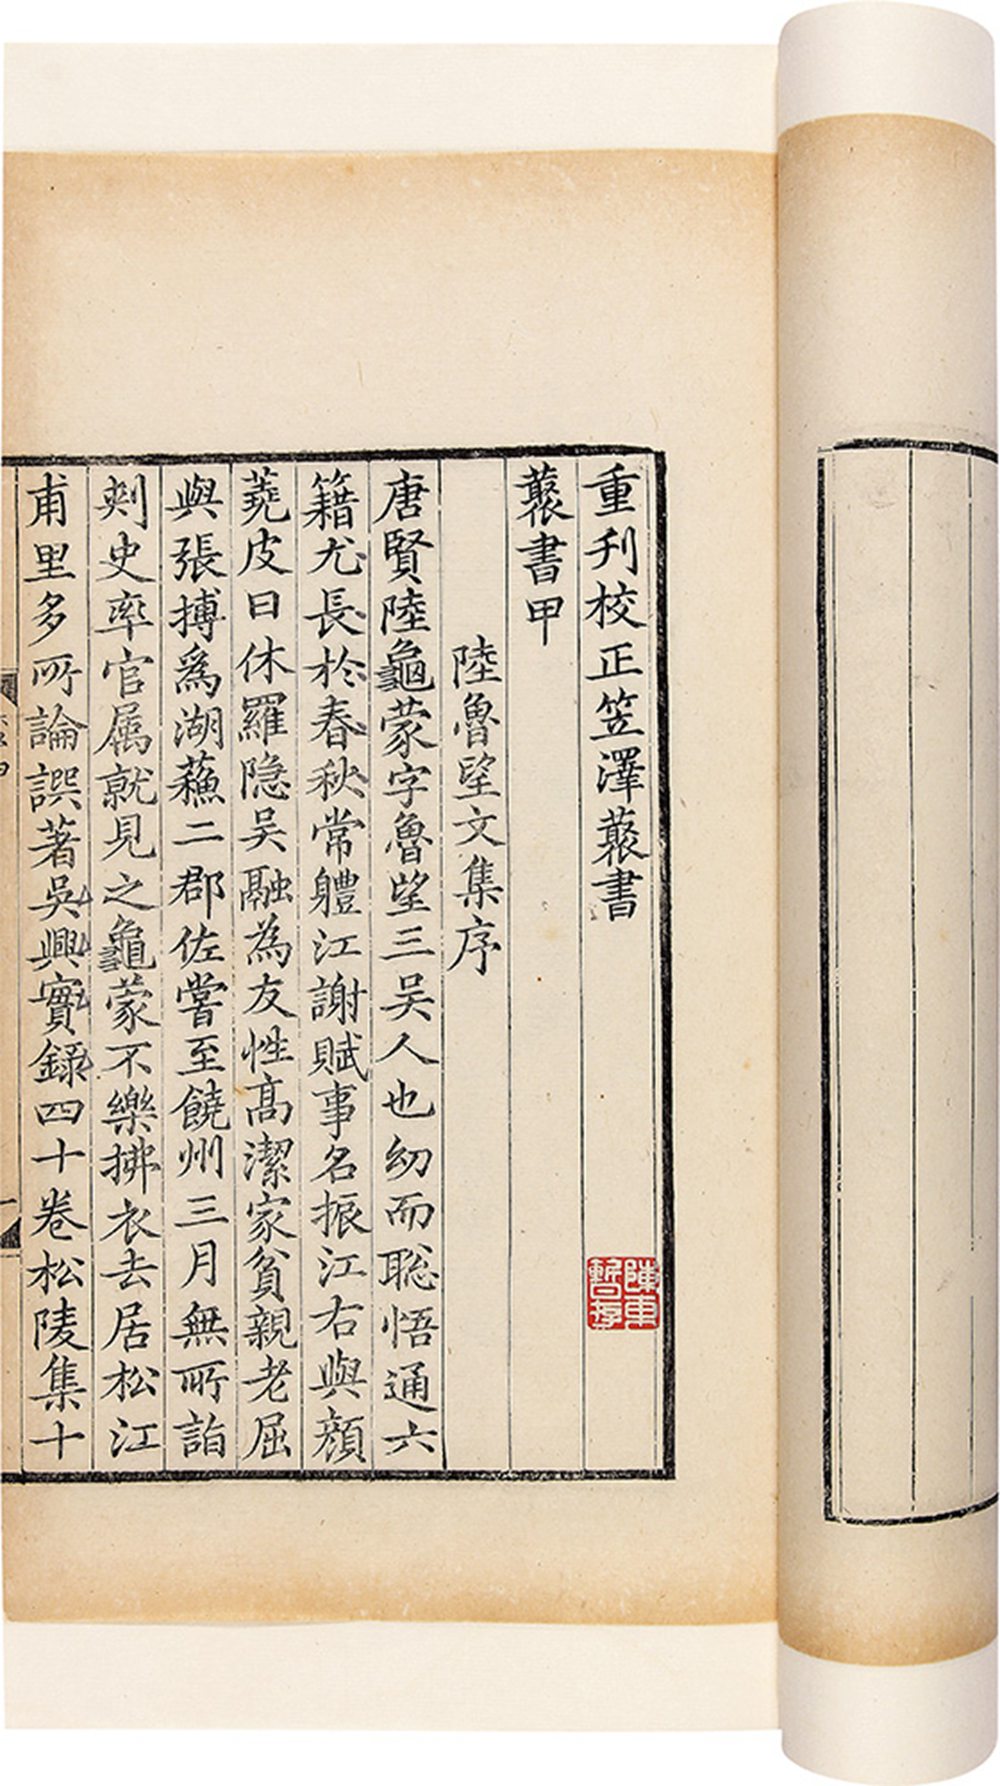 重刋校正笠澤藂書
藂書甲
陸魯望文集序
唐賢陸龜蒙字魯望三吴人也幼而聡悟通六
籍尤長於春秋常軆江謝賦事名振江右與顔
蕘皮日休羅隐吴融為友性髙潔家貧親老屈
與張搏爲湖蘓二郡佐嘗至饒州三月無所詣
刺史率官属就見之龜蒙不樂拂衣去居松江
甫里多所論譔著吳興實録四十卷松陵集十
陳東
暫存